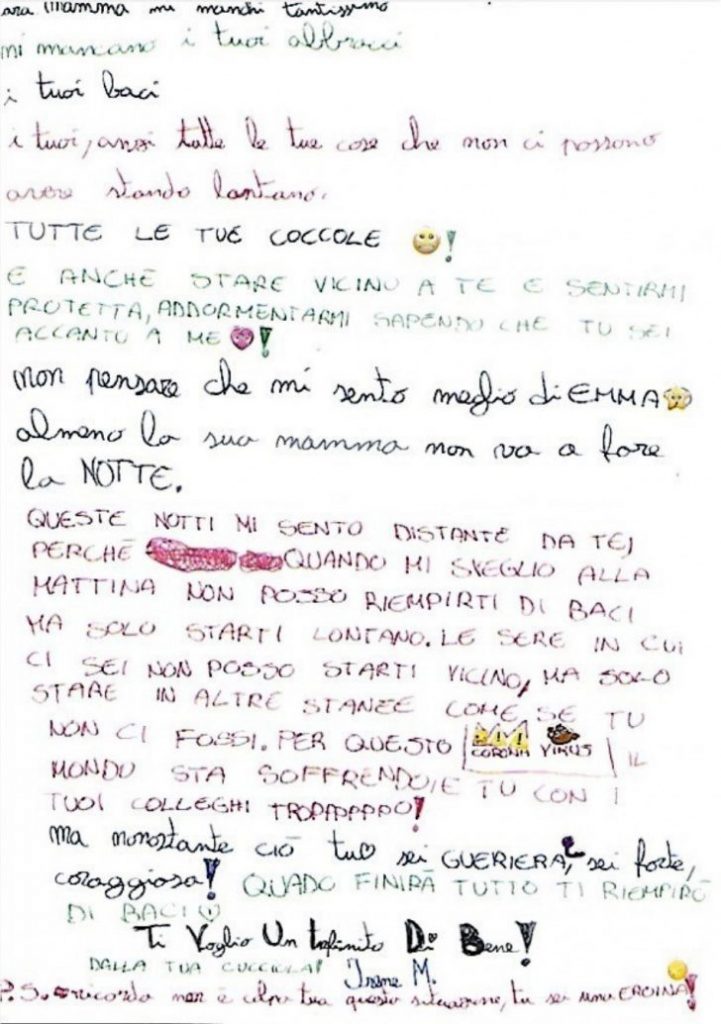 ara mamma mi manchi tantissimo
mi mancano i tuoi abbracci
i tuoi baci
i tuoi, anzi tutte le tue cose che non ci possono
avere stando lontano.
TUTTE LE TUE COCCOLE !
E ANCHE STARE VICINO A TE E SENTIRMI
PROTETTA, ADDORMENTARMI SAPENDO CHE TU SEI
ACCANTO A ME !
non pensare che mi sento meglio di EMMA
almeno la sua mamma non va a fare
la NOTTE.
QUESTE NOTTI MI SENTO DISTANTE DA TE,
PERCHÉ QUANDO MI SVEGLIO ALLA
MATTINA NON POSSO RIEMPIRTI DI BACI
MA SOLO STARTI LONTANO. LE SERE IN CUI
CI SEI NON POSSO STARTI VICINO, MA SOLO
STARE IN ALTRE STANZE COME SE TU
NON CI FOSSI. PER QUESTO CORONA VIRUS IL
MONDO STA SOFFRENDO, E TU CON I
TUOI COLLEGHI TROPPPPPPO!
ma nonostante ciò tu sei GUERIERA, sei forte,
coraggiosa! QUADO FINIRÀ TUTTO TI RIEMPIRÒ
DI BACI
Ti Voglio Un Infinito Di Bene!
DALLA TUA CUCCIOLA! Irene M.
P.S. ricorda non è colpa tua questa situazione, tu sei una EROINA!